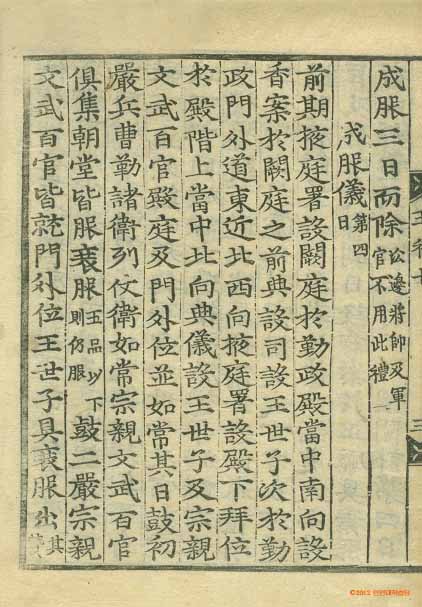 成服三日而除 沿邊將帥及軍官不用此禮
成服儀 第四日
前期掖庭署設闕庭於勤政殿當中南向設
香案於闕庭之前典設司設王世子次於勤
政門外道東近北西向掖庭署設殿下拜位
於殿階上當中北向典儀設王世子及宗親
文武百官殿庭及門外位並如常其日鼓初
嚴兵曹勒諸衛列仗衛如常宗親文武百官
俱集朝堂皆服衰服 五品以下則仍服 鼓二嚴宗親
文武百官皆就門外位王世子具衰服出 其
©2012